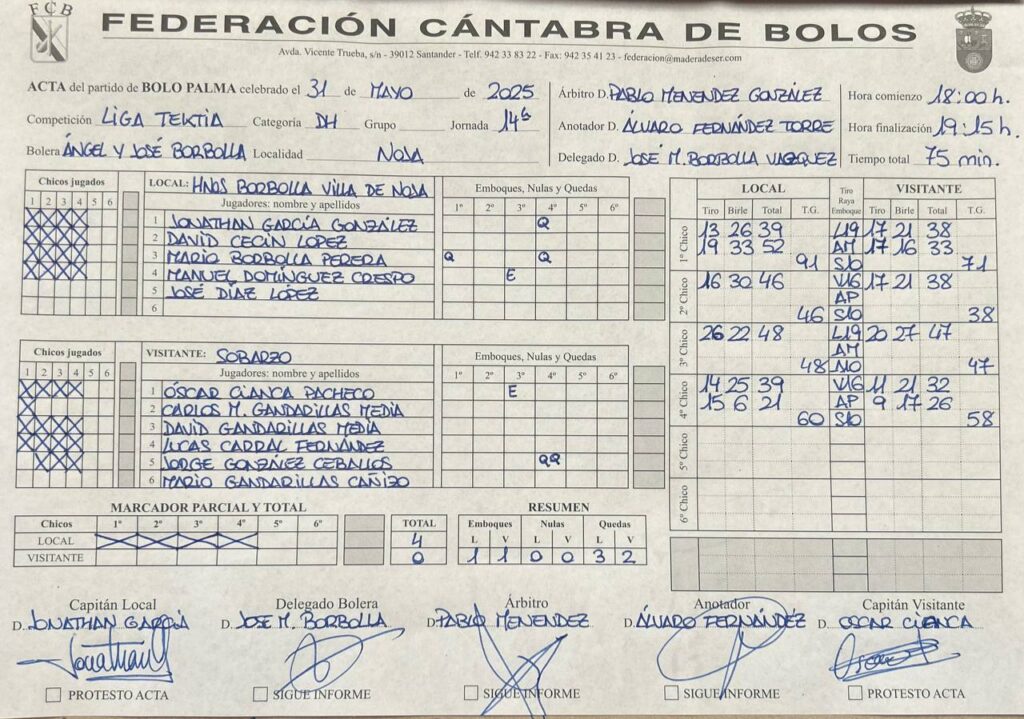 FCB
FEDERACIÓN CÁNTABRA DE BOLOS
Avda. Vicente Trueba, s/n - 39012 Santander - Telf. 942 33 83 22 - Fax: 942 35 41 23 - federacion@maderadeser.com
ACTA del partido de BOLO PALMA celebrado el 31 de MAYO de 2025
Competición LIGA TEKTIA Categoría DH Grupo Jornada 14ª
Bolera ÁNGEL Y JOSÉ BORBOLLA Localidad NOJA
Árbitro D. PABLO MENENDEZ GONZÁLEZ
Anotador D. ÁLVARO FERNÁNDEZ TORRE
Delegado D. JOSÉ M. BORBOLLA VAZQUEZ
Hora comienzo 18:00 h.
Hora finalización 19:15 h.
Tiempo total 75 min.
Chicos jugados LOCAL: HNOS BORBOLLA VILLA DE NOJA Emboques, Nulas y Quedas
1 2 3 4 5 6 Jugadores: nombre y apellidos 1º 2º 3º 4º 5º 6º
X X X X 1 JONATHAN GARCÍA GONZÁLEZ Q
X X X X 2 DAVID CECIN LOPEZ
X X X X 3 MARIO BORBOLLA PERERA Q Q
X X X X 4 MANUEL DOMÍNGUEZ CRESPO E
5 JOSÉ DÍAZ LÓPEZ
6
Chicos jugados VISITANTE: SOBARZO Emboques, Nulas y Quedas
1 2 3 4 5 6 Jugadores: nombre y apellidos 1º 2º 3º 4º 5º 6º
X X X X 1 ÓSCAR CIANCA PACHECO E
X 2 CARLOS M. GANDARILLAS MEDIA
X X X X 3 DAVID GANDARILLAS MEDIA
X X X X 4 LUCAS CARRAL FERNÁNDEZ
X X X 5 JORGE GONZÁLEZ CEBALLOS QQ
6 MARIO GANDARILLAS CAÑIZO
LOCAL Tiro Raya Emboque VISITANTE
Tiro Birle Total T.G. Tiro Birle Total T.G.
1º Chico
13 26 39 L19 17 21 38
19 33 52 AM 17 16 33
91 S10 71
2º Chico
16 30 46 V16 17 21 38
AP
46 S10 38
3º Chico
26 22 48 L19 20 27 47
AM
48 A10 47
4º Chico
14 25 39 V16 11 21 32
15 6 21 AP 9 17 26
60 S10 58
5º Chico
6º Chico
MARCADOR PARCIAL Y TOTAL
Chicos 1º 2º 3º 4º 5º 6º TOTAL
LOCAL X X X X 4
VISITANTE 0
RESUMEN
Emboques Nulas Quedas
L V L V L V
1 1 0 0 3 2
Capitán Local
D. JONATHAN GARCÍA
Jonathan G
PROTESTO ACTA
Delegado Bolera
D. JOSE M. BORBOLLA
SIGUE INFORME
Árbitro
D. PABLO MENENDEZ
SIGUE INFORME
Anotador
D. ÁLVARO FERNÁNDEZ
SIGUE INFORME
Capitán Visitante
D. OSCAR CIANCA
PROTESTO ACTA